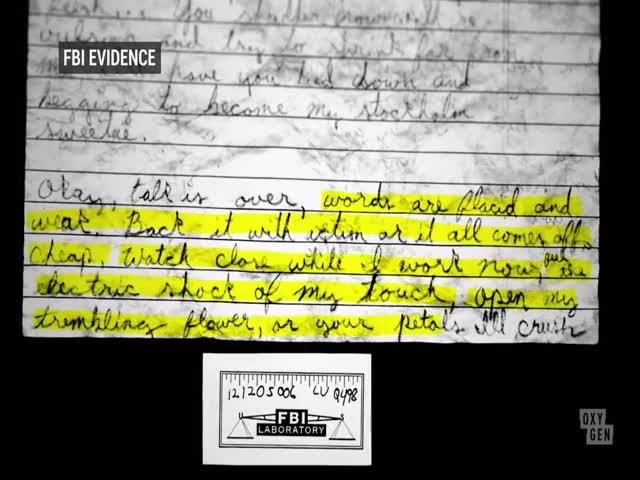 You shudder
FBI EVIDENCE
vulsion and try to shrink far from
have you tied down and
begging to become my stockholm
sweetie.
Okay, talk is over, words are placid and
weak. Back it with action or it all comes off
cheap. Watch close while I work now, feel the
electric shock of my touch, open my
trembling flower, or your petals I'll crush
121205006 LV Q498
FBI
LABORATORY
OXY
GEN